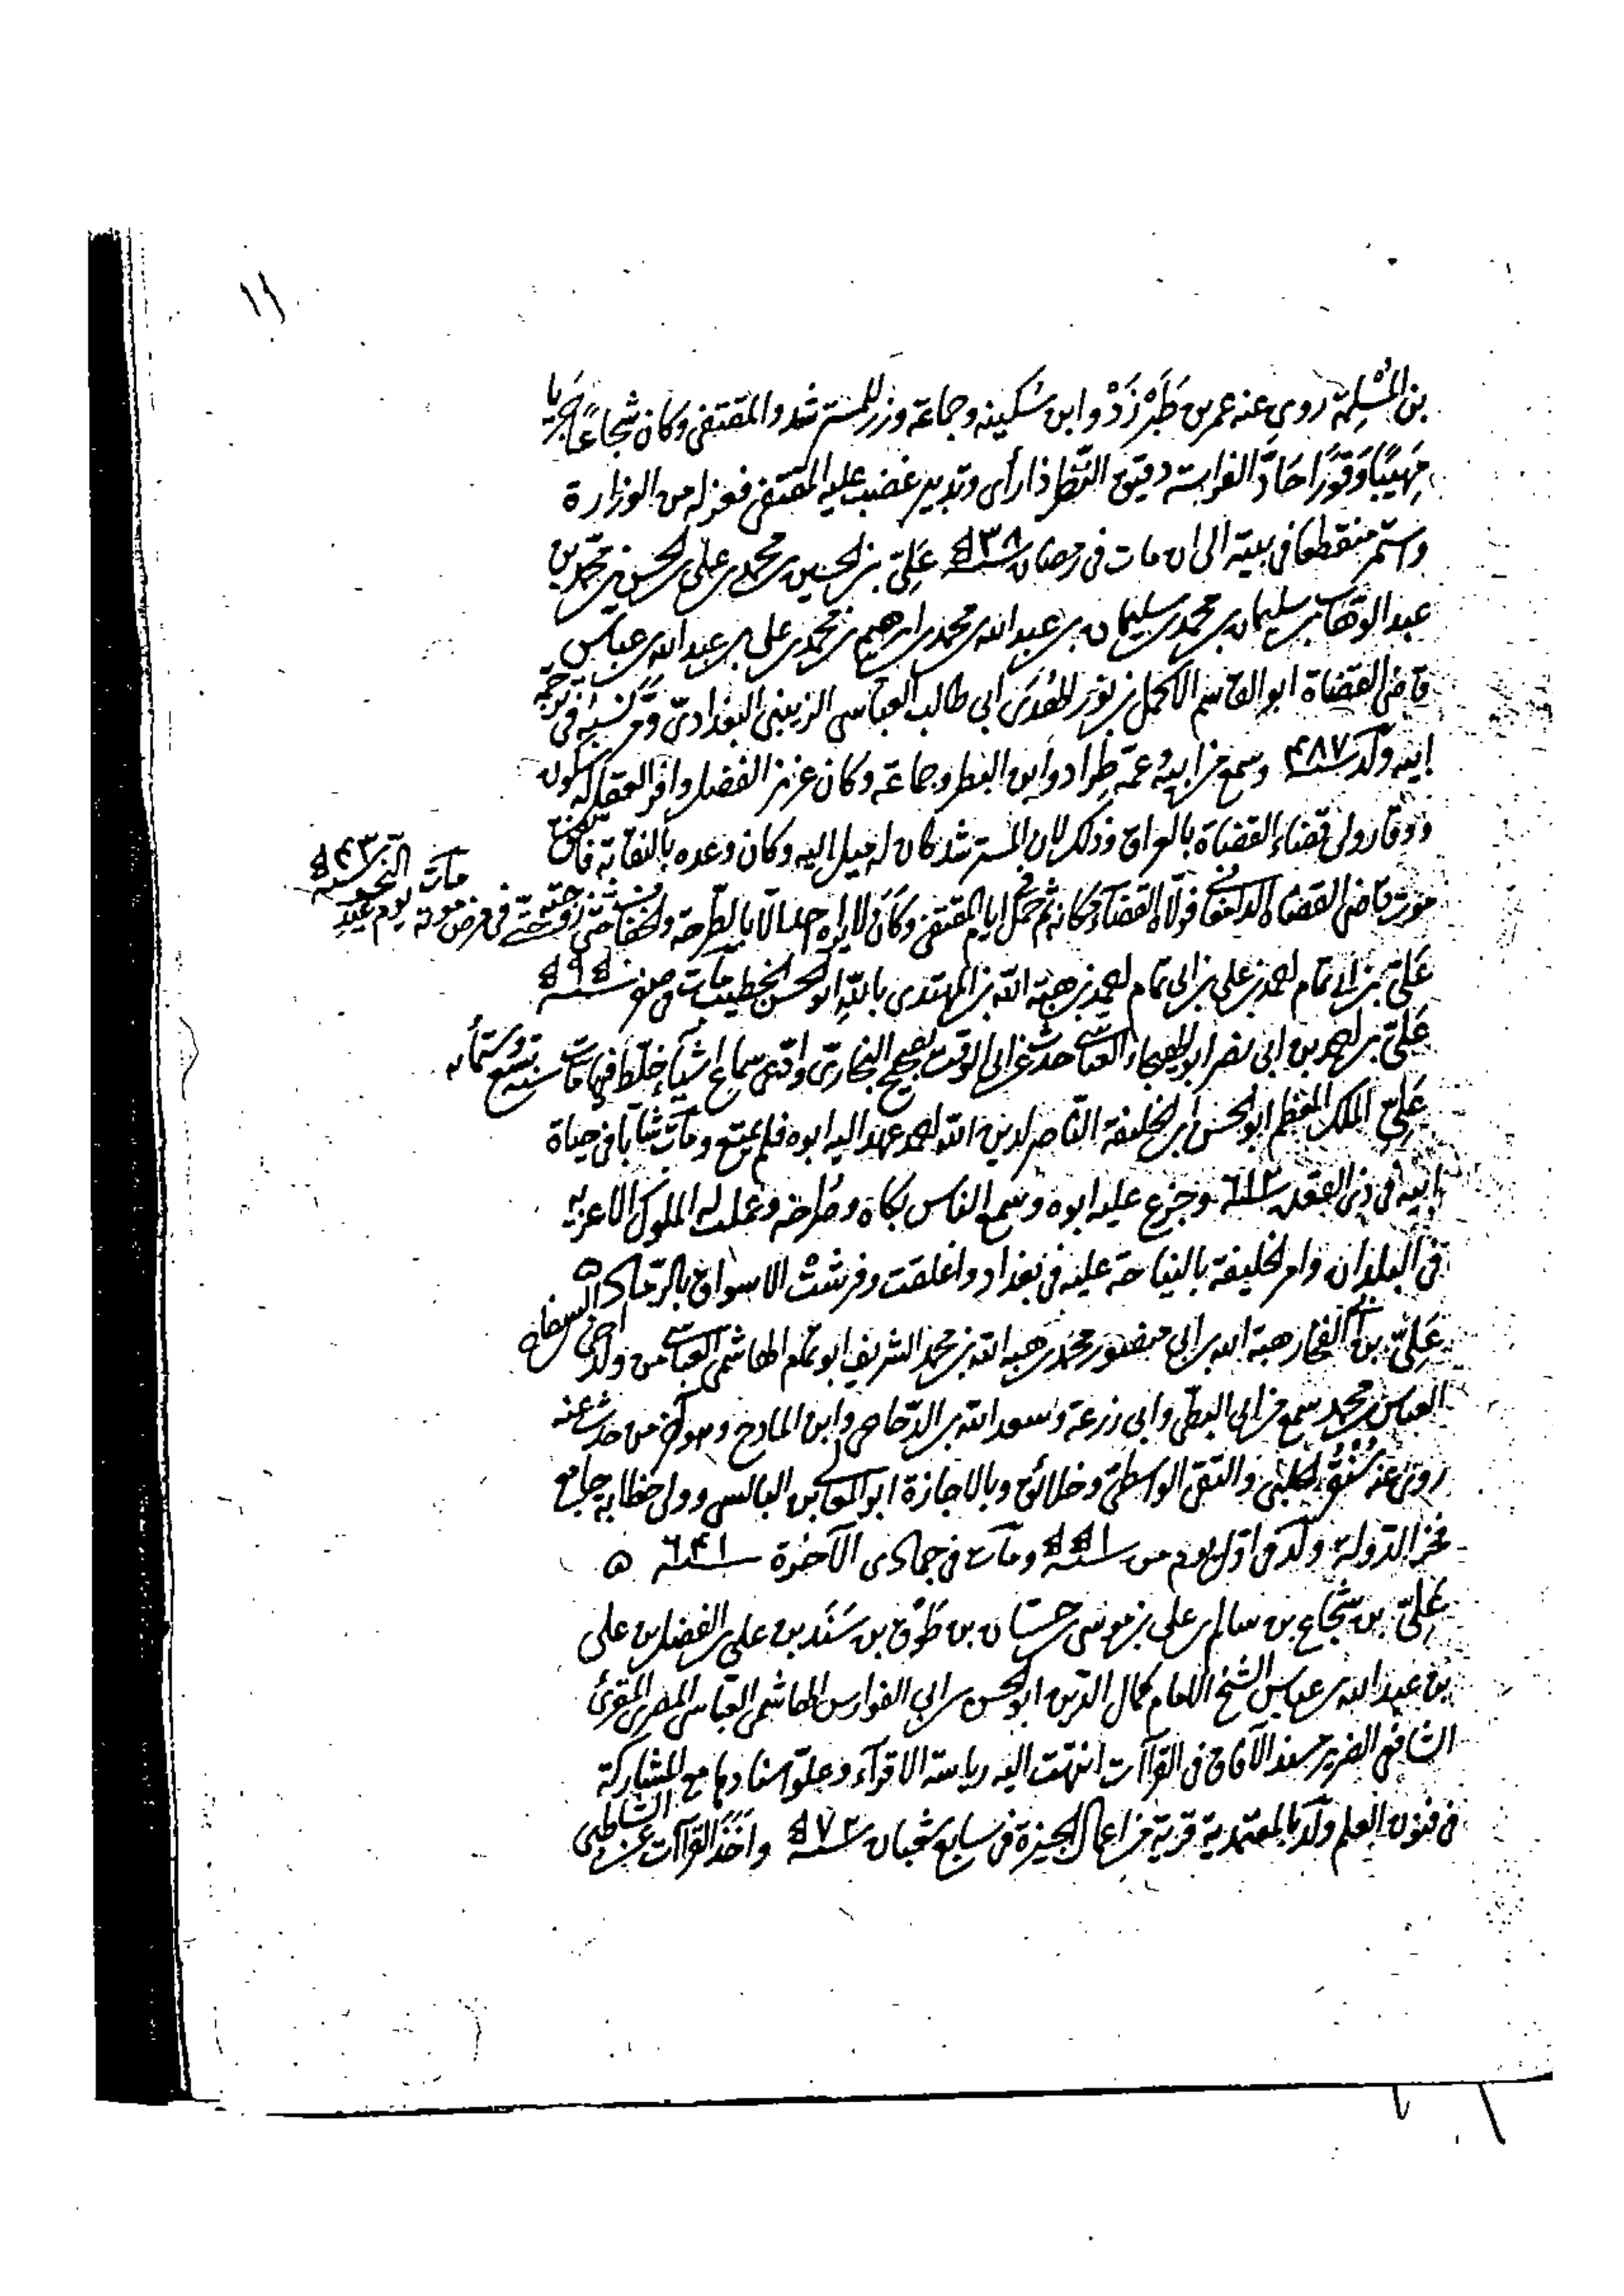 ١١
بن المُسْلِمة روى عنه عمر بن طَبَرْزَدْ وابن سُكينه وجماعة وزر للمسترشد والمقتفى وكان شجاعًا جَريا
مَهيبًا وَقورًا حَادّ الفراسة دقيق النظر ذا رأى وتدبير غضب عليه المقتفى فعزله من الوزارة
واستمر منقطعا فى بيته الى ان مات فى رمضان سنة ٥٣٨ عَلِىّ بن الحسين بن محمد بن على بن الحسن بن محمد بن
عبد الوهاب بن سليمان بن محمد بن سليمان بن عبد الله بن محمد بن ابرهيم بن محمد بن على بن عبد الله بن عباس
قاضى القضاة ابو القاسم الاكمل بن نور الهُدَى ابى طالب العباسى الزينبى البغدادىّ وقد مَرّ نسبُه فى ترجمة
ابيه ولد سنة ٤٨٧ وسمع من ابيه وعمه طِراد وابن البطر وجماعة وكان غزير الفضل وافر العقل له سكون
ووقار ولى قضاء القضاة بالعراق وذلك لان المسترشد كان له ميل اليه وكان وعده بالنقابة فاتفق
موت قاضى القضاة الدامغانى فولّاه القضاء مكانه ثم خمل ايام المقتفى وكان لا يراه احد الّا بالطّرحة والخف حتى زوجته فى مرض موته يوم عيد
مات النحر سنة ٥٤٣
عَلىّ بن ابى تمام احمد بن على بن ابى تمام احمد بن هبة الله بن المهتدى بالله ابو الحسن الخطيب مات فى صفر سنة ٥٩٥
عَلىّ بن احمد بن ابى نصر ابو الهيجاء العباسى حدث عن ابى الوقت بصحيح البخارىّ وادّعى سماع اشياء خلّط فيها مات سنة تسع وستمأيه
عَلىّ الملك المعظم ابو الحسن ابن الخليفة الناصر لدين الله احمد عهد اليه ابوه فلم يمتع ومات شابا فى حياة
ابيه فى ذى القعدة سنة ٦١٢ وجزع عليه ابوه وسمع الناس بكاه وصُراخه وعملت له الملوك الاعزية
فى البلدان وامر الخليفة بالنياحة عليه فى بغداد واغلقت وفرشتْ الاسواق بالرّماد ٥
عَلىّ بن ابى الفخار هبة الله بن ابى منصور محمد بن هبة الله بن محمد الشريف ابو تمام الهاشمى العباسى من ولد اخى السفاح
العباس بن محمد سمع من ابى البطّى وابى زرعة وسعد الله بن الدّجاجى وابن المادح وهو آخر من حدث عنه
روى عنه سُنقُر الحلبىّ والتقى الواسطىّ وخلائق وبالاجازة ابو المعالى بن البالسى وولى خطابة جامع
فخر الدّولة ولد فى اوّل يوم من سنة ٥٥١ ومات فى جمادى الآخرة سنة ٦٤١ ٥
عَلىّ بن شجاع بن سالم بن على بن موسى بن حسّان بن طَوْق بن سَنَد بن على بن الفضل بن على
بن عبد الله بن عباس الشيخ الامام كمال الدّين ابو الحسن بن ابى الفوارس الهاشمى العبّاسى المصرى المقرئ
الشافعى الضرير مسند الآفاق فى القراآت انتهت اليه رياسة الاقرآء وعلوّ اسنادها مع المشاركة
فى فنون العلم ولد بالمعتمدية قرية من اعمال الجيزة فى سابع شعبان سنة ٥٧٢ واَخَذَ القراآت عن الشاطبى